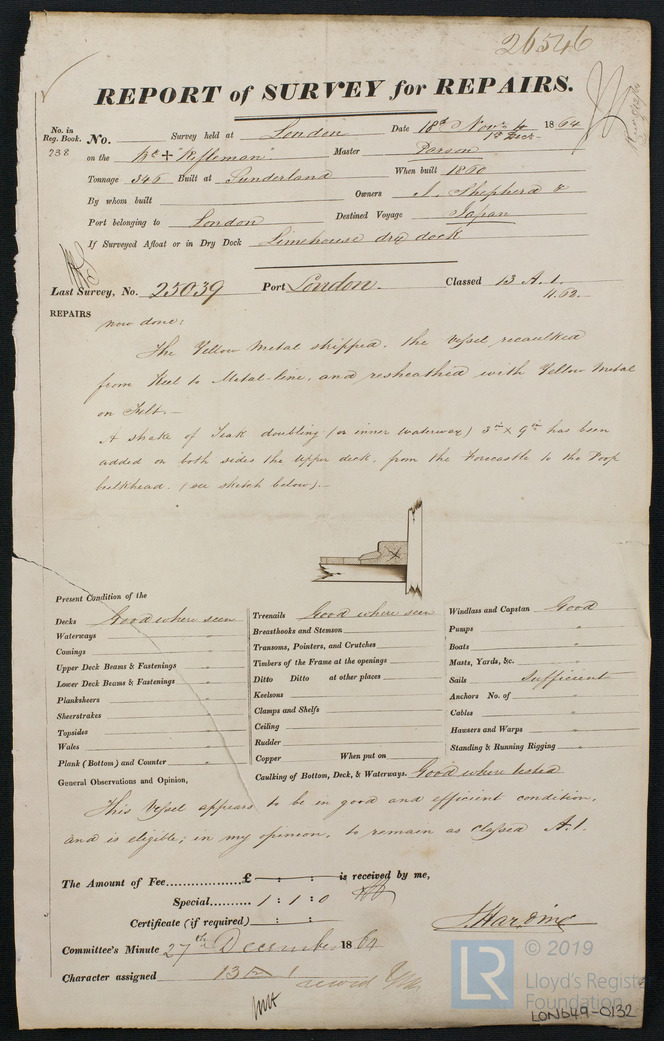 26546
REPORT of SURVEY for REPAIRS.
No. in Reg. Book. 238
No. Survey held at London Date 18th Novr to 1st Decr 1864
on the Bk + "Rifleman" Master Parson
Tonnage 346 Built at Sunderland When built 1860
By whom built Owners J. Shepherd &
Port belonging to London Destined Voyage Japan
If Surveyed Afloat or in Dry Dock Limehouse dry dock
Last Survey, No. 25039 Port London. Classed 13 A.1.
4.62.-
REPAIRS
now done:
The Yellow Metal stripped. the Vessel recaulked
from Keel to Metal-line, and resheathed with Yellow Metal
on Felt.-
A strake of Teak doubling (or inner waterway) 3in x 9in has been
added on both sides the Upper deck, from the Forecastle to the Poop
bulkhead. (see sketch below).-
Present Condition of the
Decks Good where seen
Waterways "
Comings "
Upper Deck Beams & Fastenings "
Lower Deck Beams & Fastenings "
Planksheers "
Sheerstrakes "
Topsides "
Wales "
Plank (Bottom) and Counter "
Treenails Good where seen
Breasthooks and Stemson
Transoms, Pointers, and Crutches
Timbers of the Frame at the openings
Ditto Ditto at other places
Keelsons
Clamps and Shelfs
Ceiling
Rudder
Copper When put on
Caulking of Bottom, Deck, & Waterways. Good where tested
Windlass and Capstan Good
Pumps "
Boats "
Masts, Yards, &c. "
Sails Sufficient
Anchors No. of "
Cables "
Hawsers and Warps "
Standing & Running Rigging "
General Observations and Opinion,
This Vessel appears to be in good and efficient condition,
and is eligible; in my opinion, to remain as classed A.1.
The Amount of Fee..................£ : : is received by me,
Special.......... 1 : 1 : 0
Certificate (if required) : :
Committee's Minute 27th December 1864
Character assigned 13 A 1
LR © 2019
Lloyd's Register
Foundation
LON649-0132